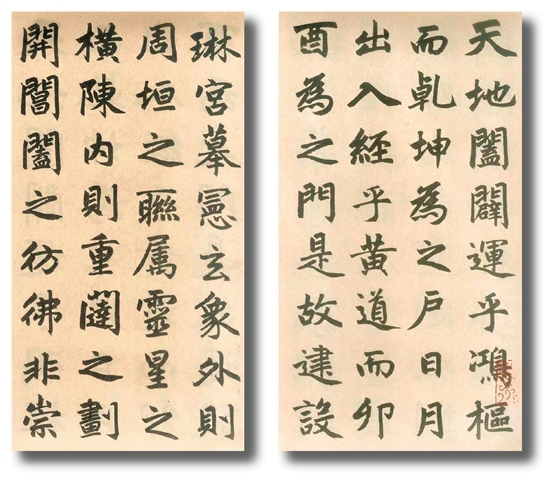 天地闔闢運乎鴻樞
而乾坤為之戶日月
出入經乎黃道而卯
酉為之門是故建設
琳宮摹憲玄象外則
周垣之聮属靈星之
橫陳内則重闥之劃
開閶闔之彷彿非崇